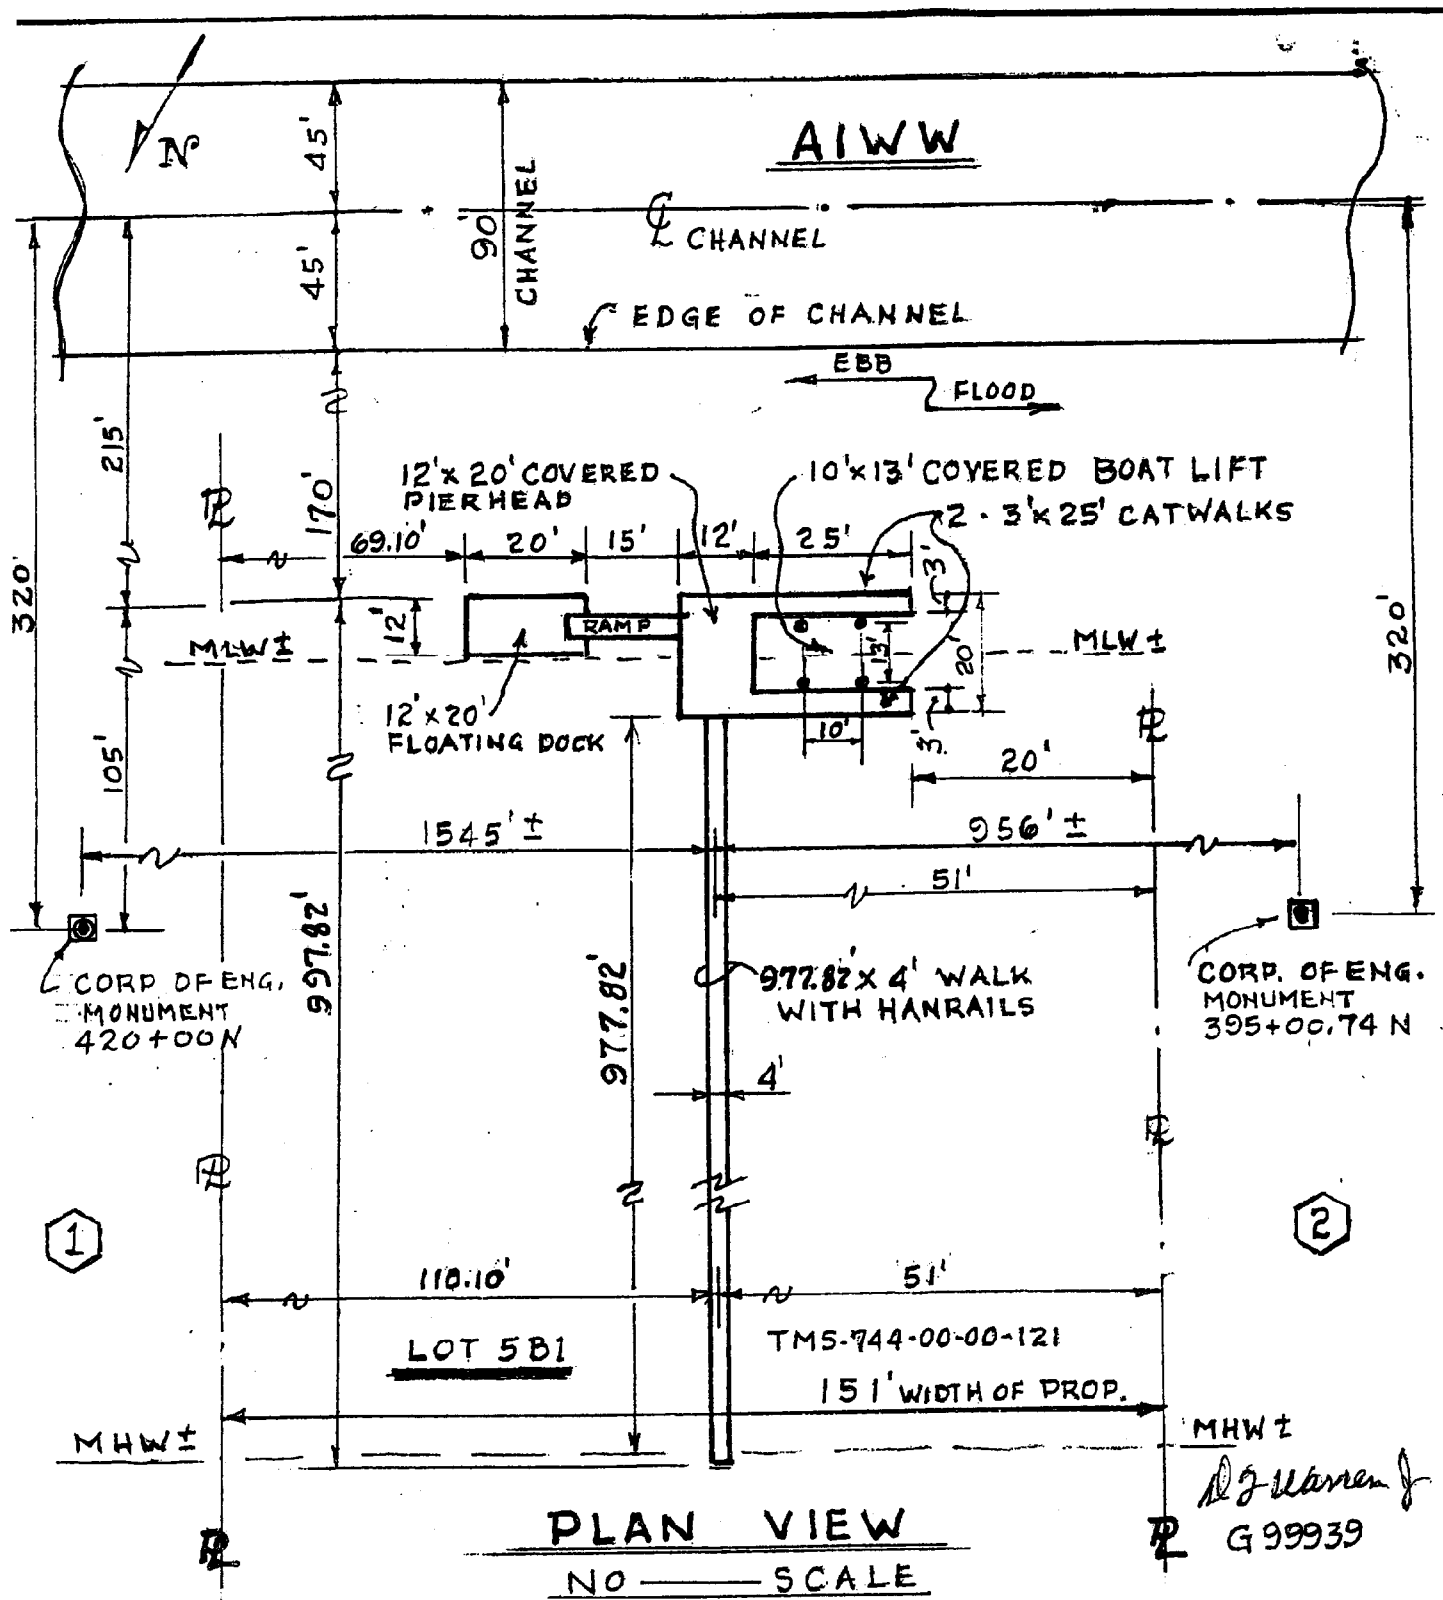 N
45'
AIWW
90'
CHANNEL
℄ CHANNEL
45'
EDGE OF CHANNEL
EBB
FLOOD
215'
170'
12' x 20' COVERED
PIERHEAD
10' x 13' COVERED BOAT LIFT
2 - 3' x 25' CATWALKS
PL
69.10'
20'
15'
12'
25'
3'
320'
12'
RAMP
13'
20'
320'
MLW ±
MLW ±
12' x 20'
FLOATING DOCK
10'
3'
PL
105'
20'
1545' ±
956' ±
51'
997.82'
977.82'
977.82' x 4' WALK
WITH HANRAILS
CORP OF ENG.
MONUMENT
420+00 N
CORP. OF ENG.
MONUMENT
395+00.74 N
4'
PL
PL
1
2
110.10'
51'
LOT 5B1
TMS-744-00-00-121
151' WIDTH OF PROP.
MHW ±
MHW ±
PLAN VIEW
PL
PL
G 99939
NO SCALE